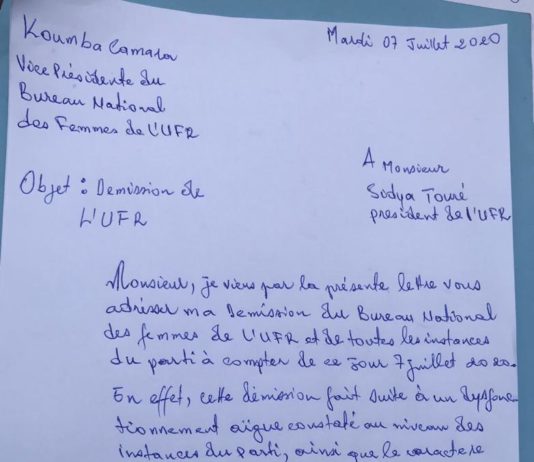 Koumba Camara
Mardi 07 Juillet 2020
Vice Présidente du
Bureau National
des Femmes de L'UFR
A Monsieur
Sidya Touré
president de l'UFR
Objet : Demission de
L'UFR
Monsieur, je viens par la présente lettre vous
adresser ma Demission du Bureau National
des femmes de L'UFR et de toutes les instances
du parti à compter de ce jour 7 juillet 2020.
En effet, cette démission fait suite à un dysfonc
tionnement aïgue constaté au niveau des
instances du parti, ainsi que le caractere